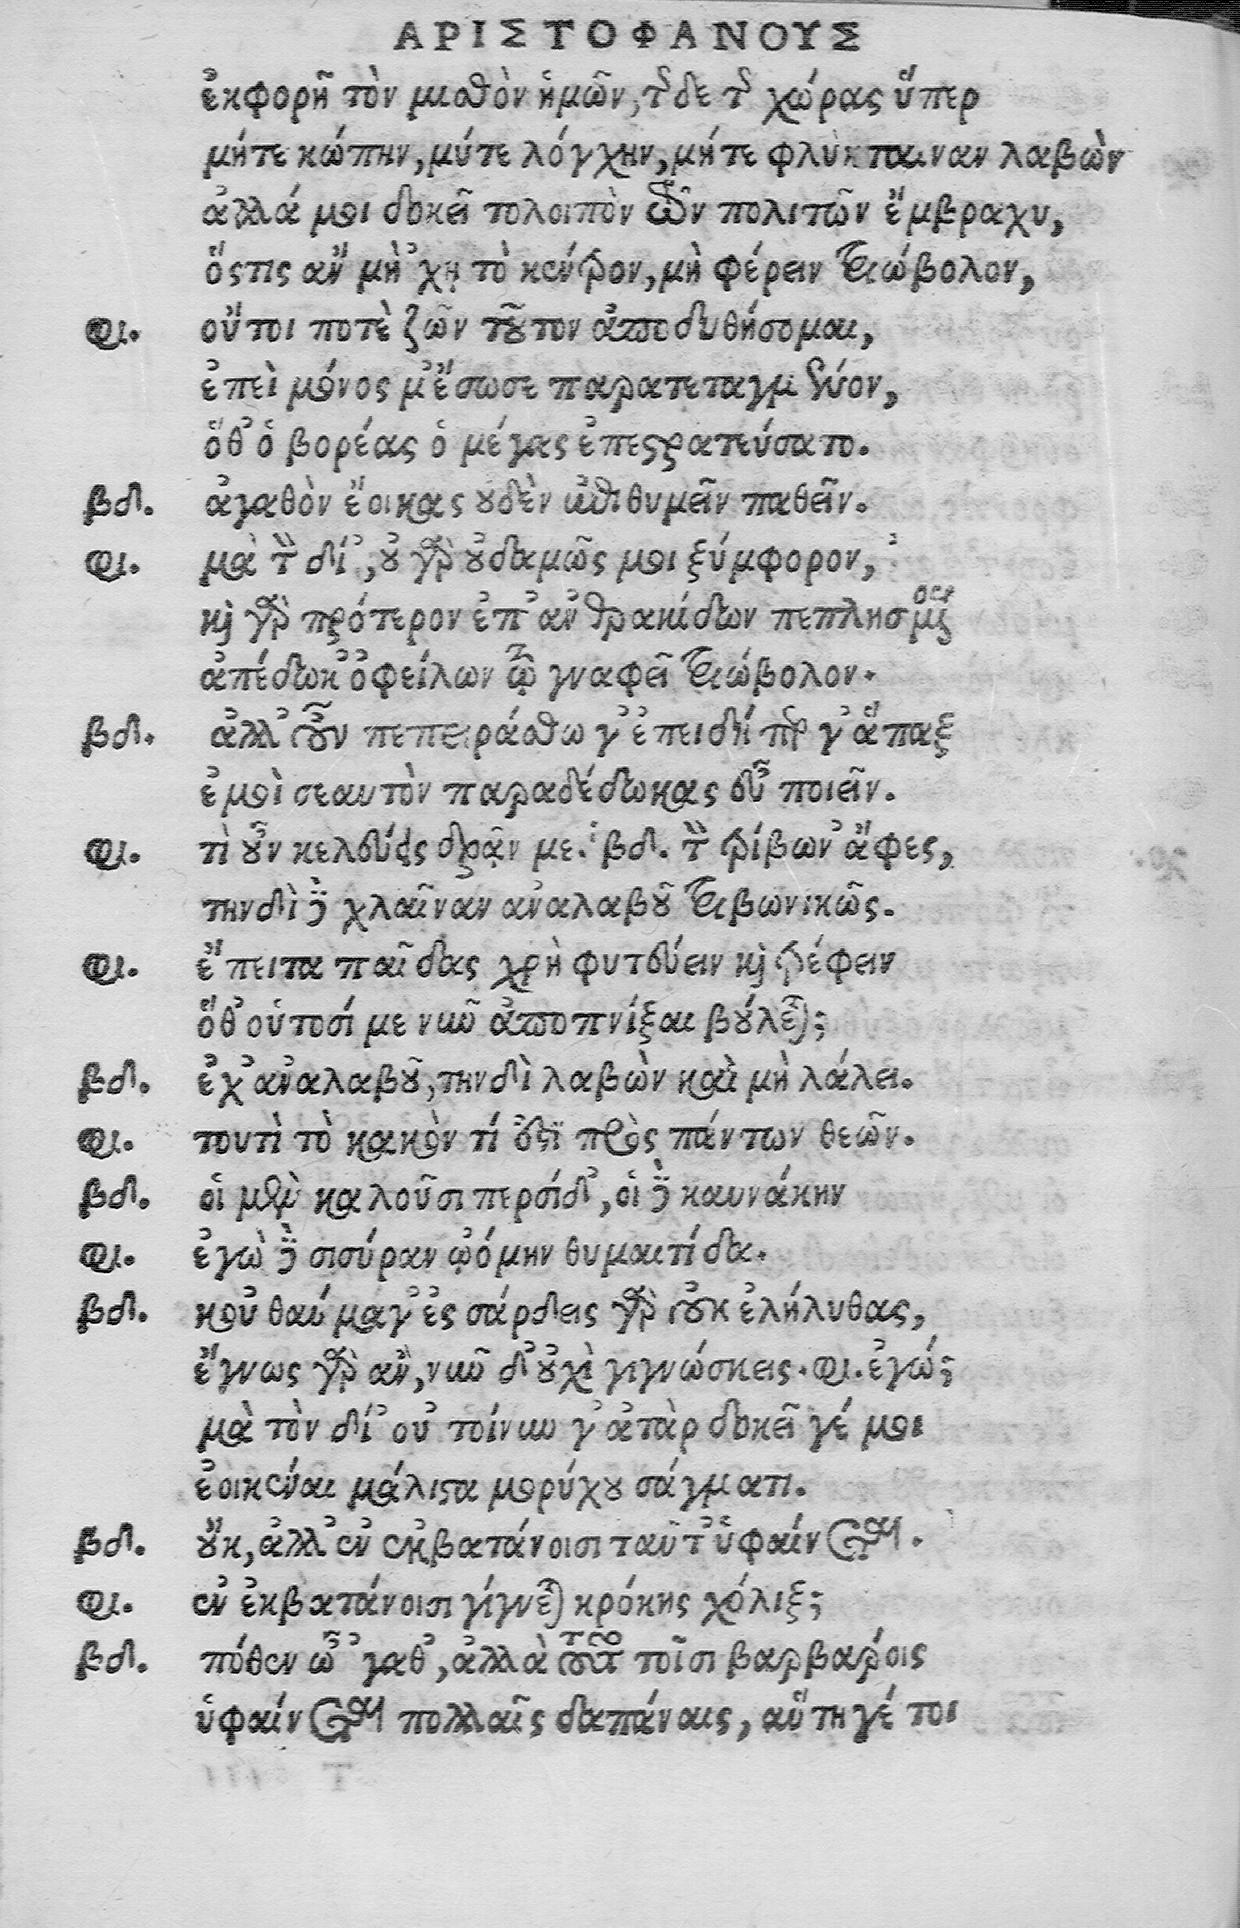 ΑΡΙΣΤΟΦΑΝΟΥΣ
ἐκφορῇ τὸν μισθὸν ἡμῶν, τῆσδε τῆς χώρας ὕπερ
μήτε κώπην, μύτε λόγχην, μήτε φλύκταιναν λαβὼν
ἀλλά μοι δοκεῖ τολοιπὸν τῶν πολιτῶν ἔμβραχυ,
ὅςτις ἂν μὴ ’χῃ τὸ κέντρον, μὴ φέρειν τριώβολον,
φι. οὔτοι ποτὲ ζῶν τοῦτον ἀποδυθήσομαι,
ἐπεὶ μόνος μ’ ἔσωσε παρατεταγμένον,
ὅθ’ ὁ βορέας ὁ μέγας ἐπεστρατεύσατο.
βδ. ἀγαθὸν ἔοικας οὐδὲν ἐπιθυμεῖν παθεῖν.
φι. μὰ τὸν δί’, οὐ γὰρ οὐδαμῶς μοι ξύμφορον,
καὶ γὰρ πρότερον ἐπ’ ἀνθρακίδων πεπλησμένος
ἀπέδωκ’ ὀφείλων τῷ γναφεῖ τριώβολον.
βδ. ἀλλ’ οὖν πεπειράσθω γ’ ἐπειδήπερ γ’ ἅπαξ
ἐμοὶ σεαυτὸν παραδέδωκας εὖ ποιεῖν.
φι. τὶ οὖν κελεύεις δρᾷν με; βδ. τὸν τρίβων’ ἄφες,
τηνδὶ δὲ χλαῖναν ἀναλαβοῦ τριβωνικῶς.
φι. ἔπειτα παῖδας χρὴ φυτεύειν καὶ τρέφειν
ὅθ’ οὑτοσί με νῦν ἀποπνίξαι βούλεται;
βδ. ἔχ’ ἀναλαβοῦ, τηνδὶ λαβὼν καὶ μὴ λάλει.
φι. τουτὶ τὸ κακὸν τί ἐστὶ πρὸς πάντων θεῶν.
βδ. οἱ μὲν καλοῦσι περσίδ’, οἱ δὲ καυνάκην
φι. ἐγὼ δὲ σισύραν ᾠόμην θυμαιτίδα.
βδ. κοὐ θαύμαγ’ ἐς σάρδεις γὰρ οὐκ ἐλήλυθας,
ἔγνως γὰρ ἂν, νῦν δ’ οὐχὶ γιγνώσκεις. φι. ἐγώ;
μὰ τὸν δί’ οὐ τοίνυν γ’ ἀτὰρ δοκεῖ γέ μοι
ἐοικέναι μάλιστα μορύχου σάγματι.
βδ. οὔκ, ἀλλ’ ἐν ἐκβατάνοισι ταῦτ’ ὑφαίνεται.
φι. ἐν ἐκβατάνοισι γίγνεται κρόκης χόλιξ;
βδ. πόθεν ὦ ’γαθ’, ἀλλὰ τοῦτο τοῖσι βαρβάροις
ὑφαίνεται πολλαῖς δαπάναις, αὕτη γέ τοι